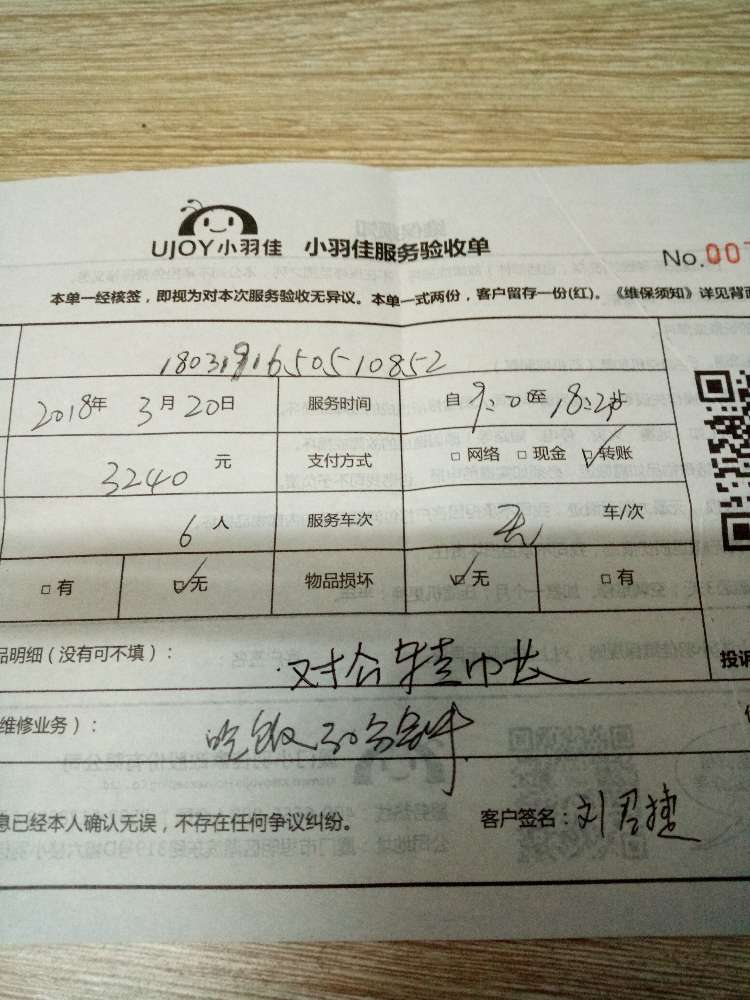 UJOY小羽佳 小羽佳服务验收单
No.007
本单一经核签，即视为对本次服务验收无异议。本单一式两份，客户留存一份(红)。《维保须知》详见背面
1803191650510852
2018年 3月20日 服务时间 自9:00至18:20
3240元 支付方式 □网络 □现金 □转账
6人 服务车次 车/次
□有 □无 物品损坏 □无 □有
品明细（没有可不填）： 对公转
维修业务）： 吃饭30分钟
投诉
息已经本人确认无误，不存在任何争议纠纷。 客户签名：刘君捷